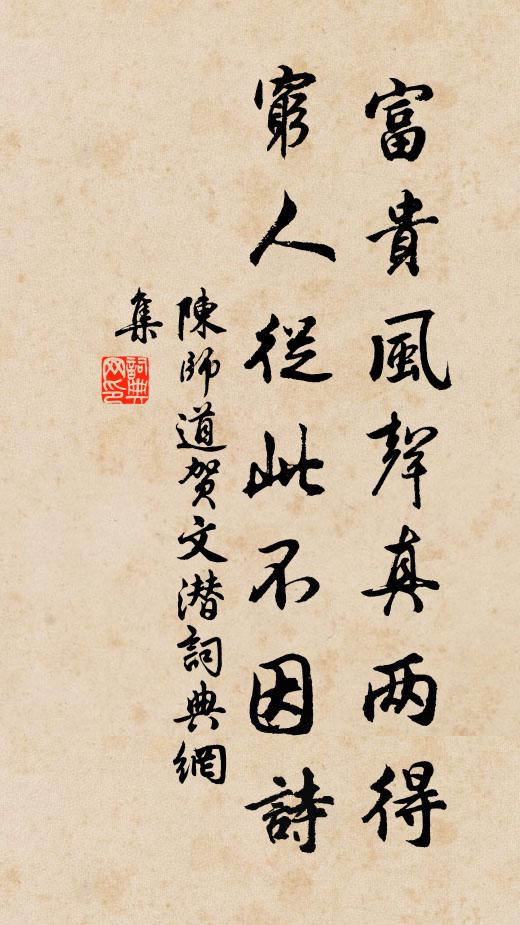 富貴風聲真两得
窮人從此不因詩
陳師道賀文潜詞典網
集
詞典网印